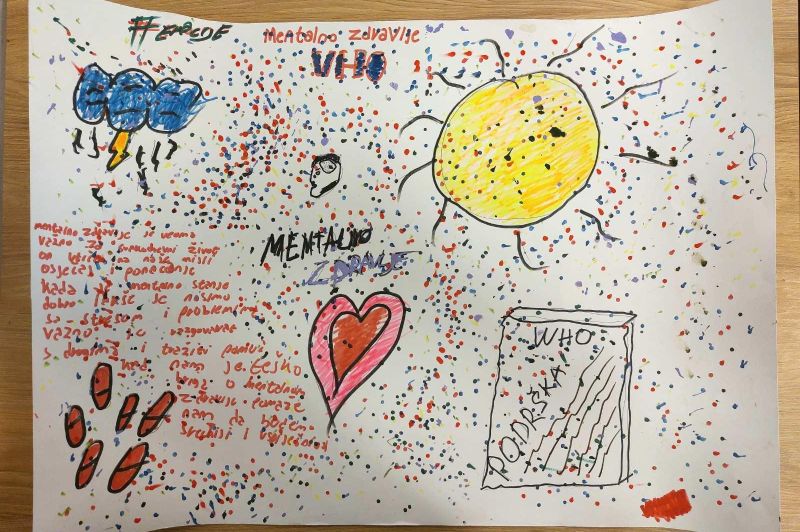 mentalno zdravlje
MENTALNO
ZDRAVLJE
mentalno zdravlje je veoma
važno za svakodnevni život
on utiče na naše misli
osjećaj i ponašanje
kada je mentalno stanje
dobro lakše se nosimo
sa stresom i problemima
važno je razgovarat
s drugima i tražiti pomoć
kad nam je teško
briga o mentalnom
zdravlju pomaže
nam da budem
srećniji i
WHO
PODRŠKA